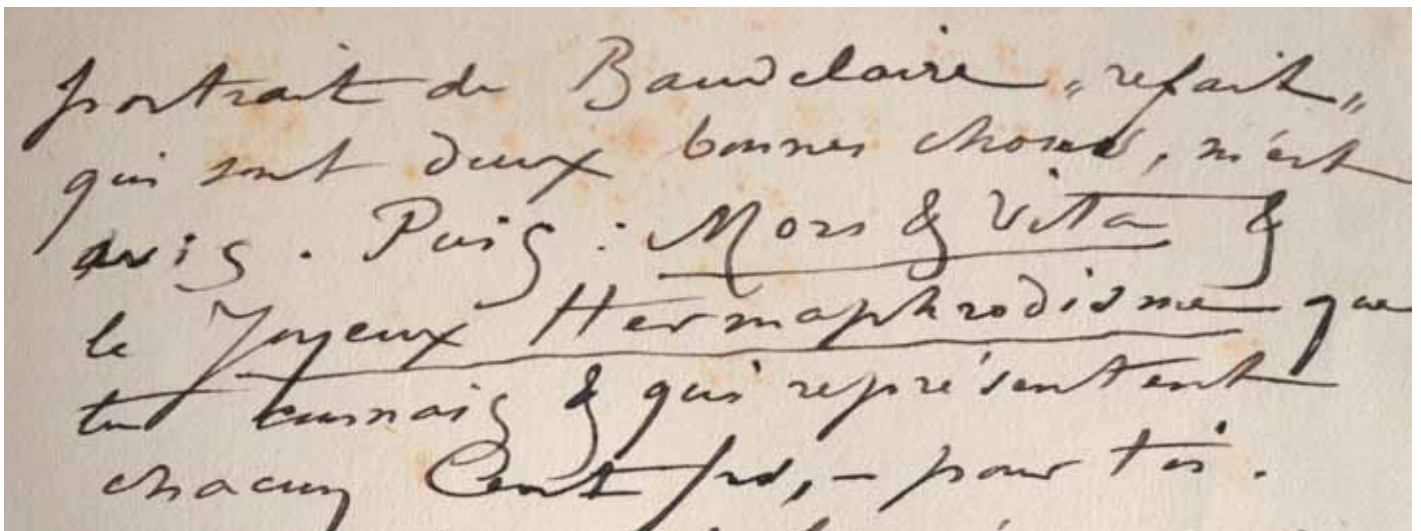 portrait de Baudelaire „refait„
qui sont deux bonnes choses, m'est
avis. Puis : Mors & Vita &
le Joyeux Hermaphrodisme que
tu connais & qui représentent
chacun Cent frs, – pour toi.